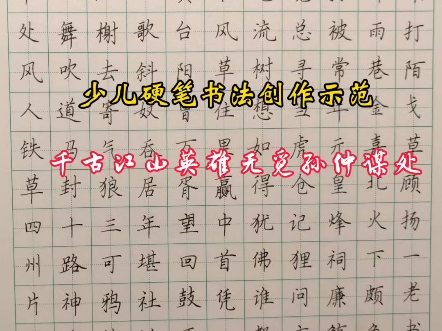 处舞榭歌台风流总被雨打
风吹去斜阳草树寻常巷陌
少儿硬笔书法创作示范
人道寄奴曾住想当年金戈
铁马气吞万里如虎元嘉草
千古江山英雄无觅孙仲谋处
草封狼居胥赢得仓皇北顾
四十三年望中犹记烽火扬
州路可堪回首佛狸祠下一
片神鸦社鼓凭谁问廉颇老